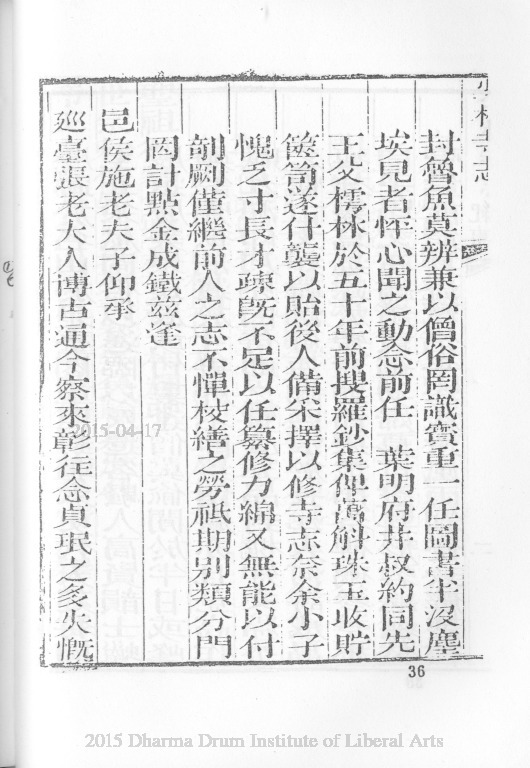 少林寺志
封魯魚莫辨兼以僧俗罔識寳重一任圖書半沒塵
埃見者怦心聞之動念前任　葉明府井叔約同先
王父樗林於五十年前搜羅鈔集俾萬斛珠玉收貯
篋笥遂什襲以貽後人備采擇以修寺志奈余小子
愧乏寸長才疎旣不足以任纂修力綿又無能以付
剞劂僅繼前人之志不憚校繕之勞祗期別類分門
罔計點金成鐵兹逢
邑侯施老夫子仰承
廵臺張老大人博古通今察來彰往念貞珉之多失慨
36
2015-04-17
2015 Dharma Drum Institute of Liberal Arts